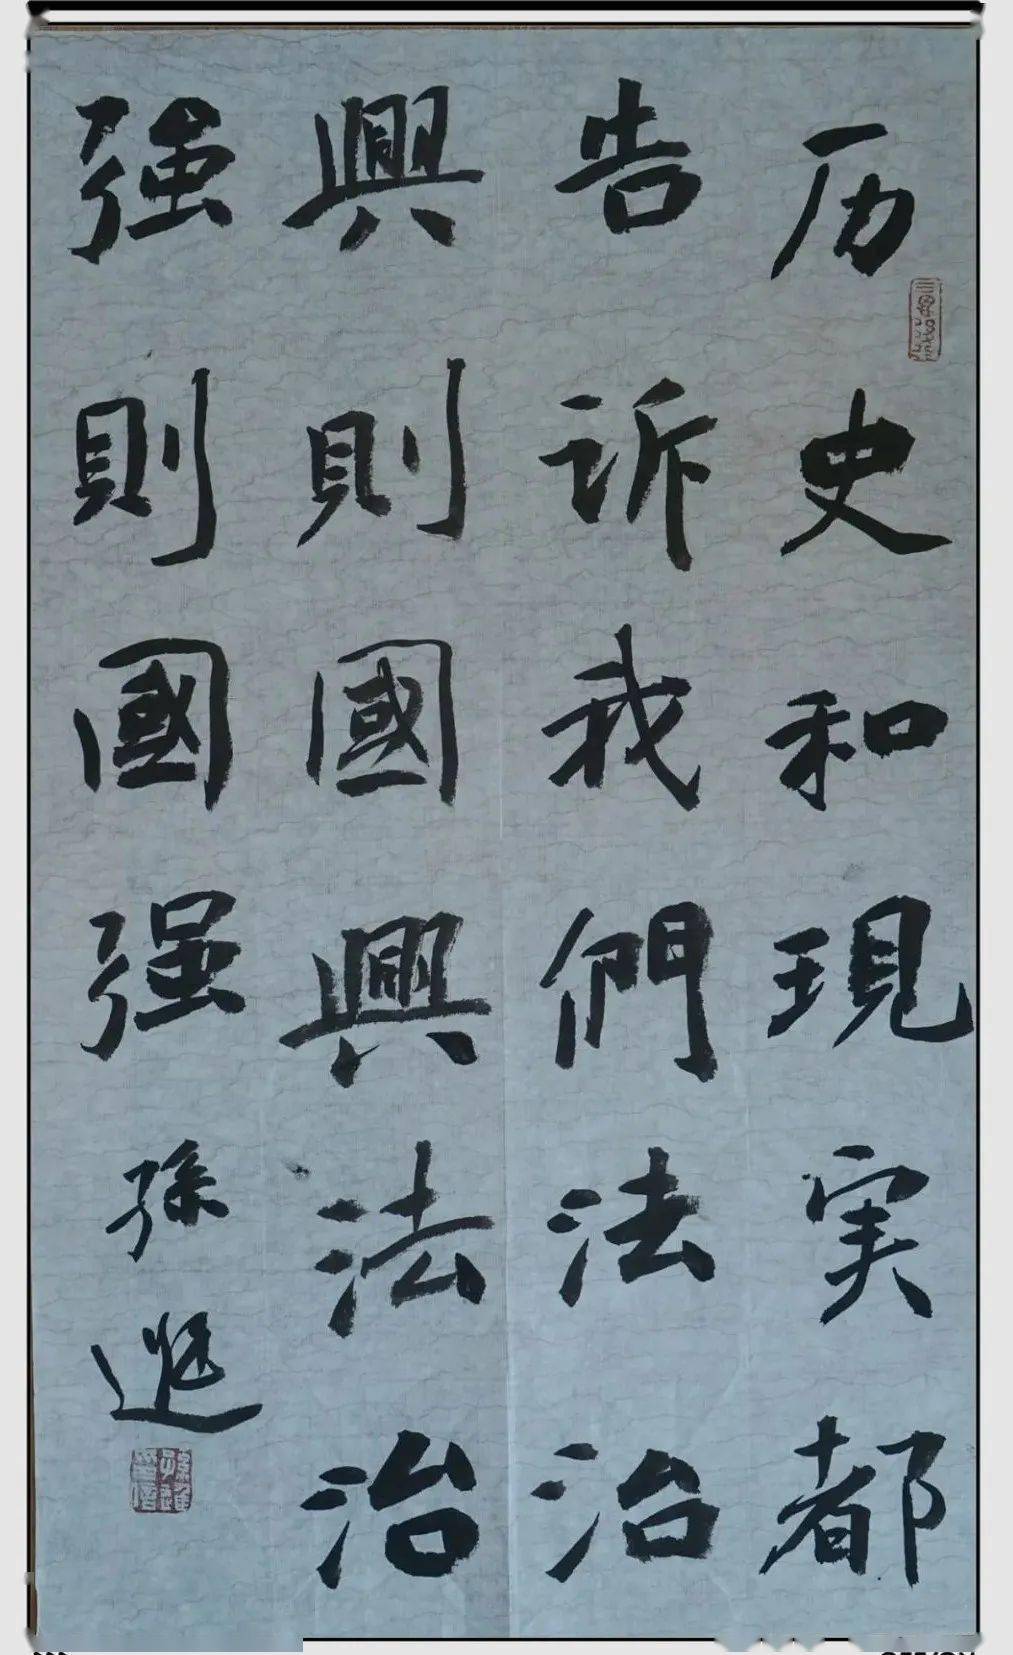 历史和現实都
告诉我們法治
興則國興法治
强則國强
孫